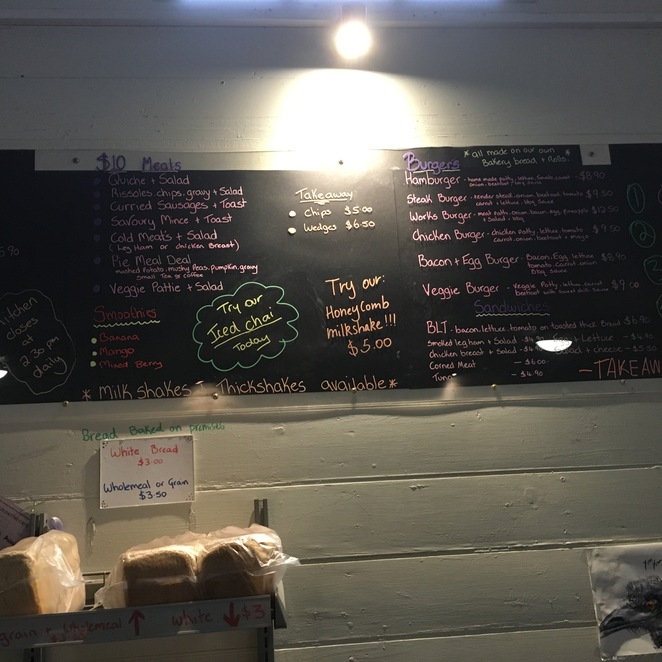 $10 Meals
Quiche + Salad
Rissoles, chips, gravy + Salad
Curried Sausages + Toast
Savoury Mince + Toast
Cold Meats + Salad
(Leg Ham or chicken Breast)
Pie Meal Deal
mushed Potato, mushy Peas, pumpkin, gravy
small Tea or coffee
Veggie Pattie + Salad
Smoothies
Banana
Mango
Mixed Berry
kitchen
closes
at
2.30 pm
daily
Try our
Iced chai
Today
Takeaway
Chips $5.00
Wedges $6.50
Try our:
HoneyComb
milkshake!!!
$5.00
* Milkshakes + Thickshakes available *
Burgers
* all made on our own
Bakery bread + Rolls.
Hamburger - home made patty, lettuce, tomato, carrot $8.90
onion, beetroot
Steak Burger - tender steak, onion, beetroot, tomato $9.50
carrot, lettuce, BBQ Sauce
Works Burger - meat patty, onion, bacon, egg, pineapple $12.50
+ Salad + BBQ
Chicken Burger - chicken patty, lettuce, tomato $9.50
carrot, onion, beetroot + mayo
Bacon + Egg Burger - Bacon, Egg, lettuce $8.90
tomato, carrot, onion
BBQ Sauce
Veggie Burger - Veggie Patty, lettuce, carrot $9.00
beetroot with sweet chilli sauce
Sandwiches
BLT - bacon, lettuce, tomato on toasted thick Bread $6.90
Smoked leg ham + Salad
+ Lettuce - $4.90
chicken breast + Salad
+ cheese - $5.50
Corned Meat $6.00
Tuna - $4.90
- TAKEAW
1
2
Bread Baked on premises
White Bread
$3.00
Wholemeal or Grain
$3.50
grain + Wholemeal ↑ White ↓ $3